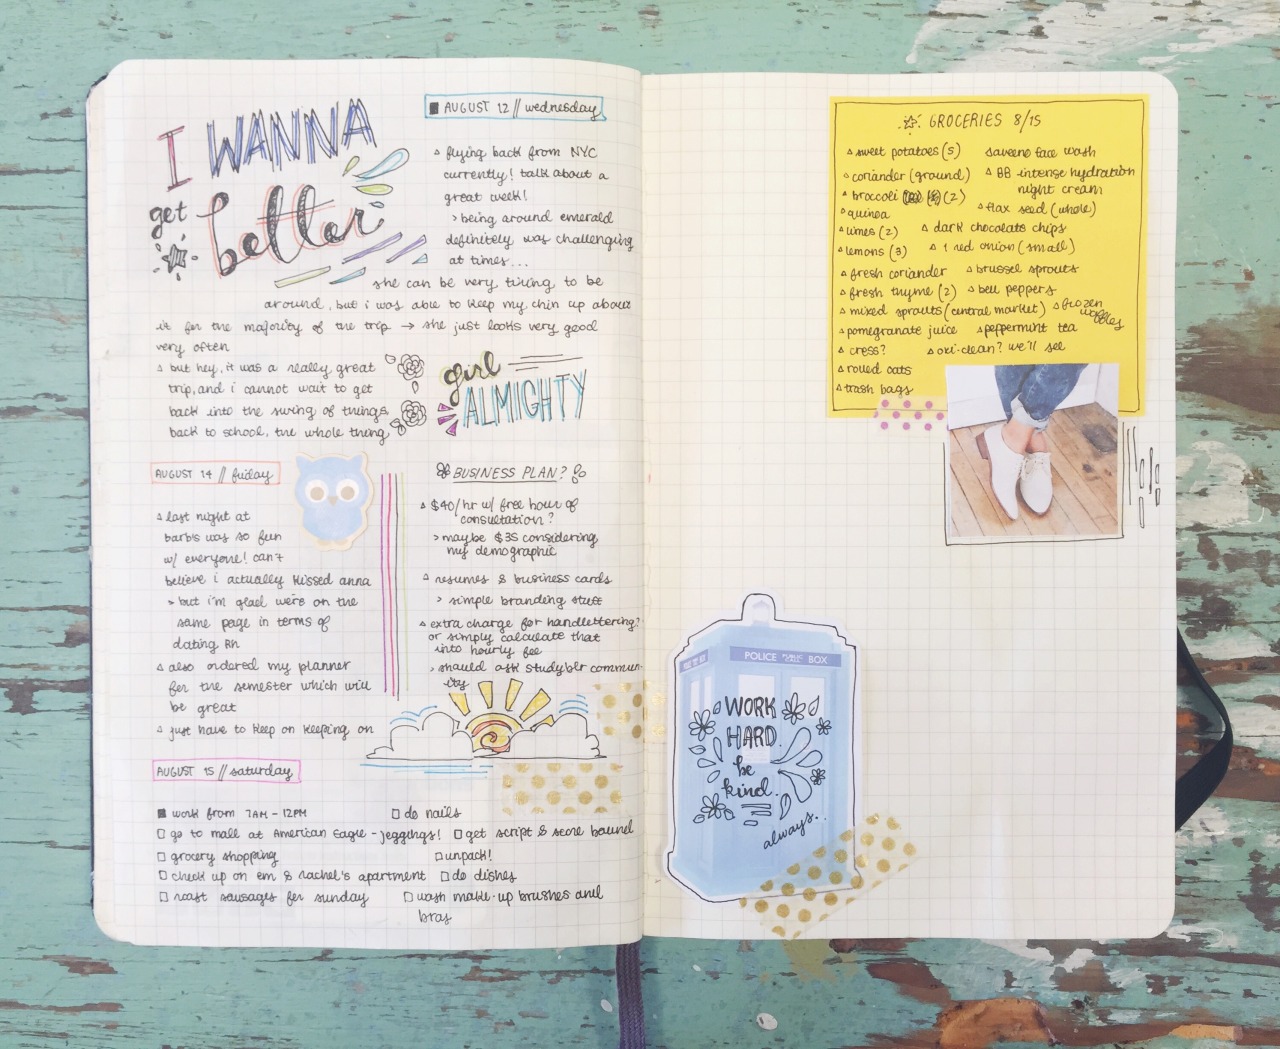 I WANNA
get better
■ AUGUST 12 // wednesday
▵ flying back from NYC
currently! talk about a
great week!
> being around emerald
definitely was challenging
at times...
she can be very tiring to be
around, but i was able to keep my chin up about
it for the majority of the trip → she just looks very good
very often
▵ but hey, it was a really great
trip, and i cannot wait to get
back into the swing of things,
back to school, the whole thing
girl
ALMIGHTY
AUGUST 14 // friday
▵ last night at
barb's was so fun
w/ everyone! can't
believe i actually kissed anna
> but i'm glad we're on the
same page in terms of
dating rn
▵ also ordered my planner
for the semester which will
be great
▵ just have to keep on keeping on
BUSINESS PLAN?
▵ $40/hr w/ free hour of
consultation?
> maybe $35 considering
my demographic
▵ resumes & business cards
> simple branding stuff
▵ extra charge for handlettering?
or simply calculate that
into hourly fee
> should ask studyblr commun-
ity
AUGUST 15 // saturday
■ work from 7AM - 12PM
□ do nails
□ go to mall at American Eagle - jeggings! □ get script & score bound
□ grocery shopping
□ unpack!
□ check up on em & rachel's apartment □ do dishes
□ roast sausages for sunday
□ wash make-up brushes and
bras
☆ GROCERIES 8/15
▵ sweet potatoes (5)
▵ coriander (ground)
▵ broccoli (2)
▵ quinoa
▵ limes (2) ▵ dark chocolate chips
▵ lemons (3) ▵ 1 red onion (small)
▵ fresh coriander ▵ brussel sprouts
▵ fresh thyme (2) ▵ bell peppers
▵ mixed sprouts (central market) ▵ frozen
waffles
▵ pomegranate juice ▵ peppermint tea
▵ cress? ▵ oxi-clean? we'll see
▵ rolled oats
▵ trash bags
▵ aveeno face wash
▵ BB intense hydration
night cream
▵ flax seed (whole)
POLICE PUBLIC CALL BOX
WORK
HARD.
be
kind.
always.